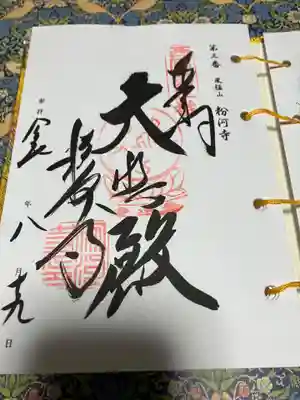 第三番 風猛山 粉河寺
奉
大悲殿
粉河寺
奉拝 年 八 月 十九 日